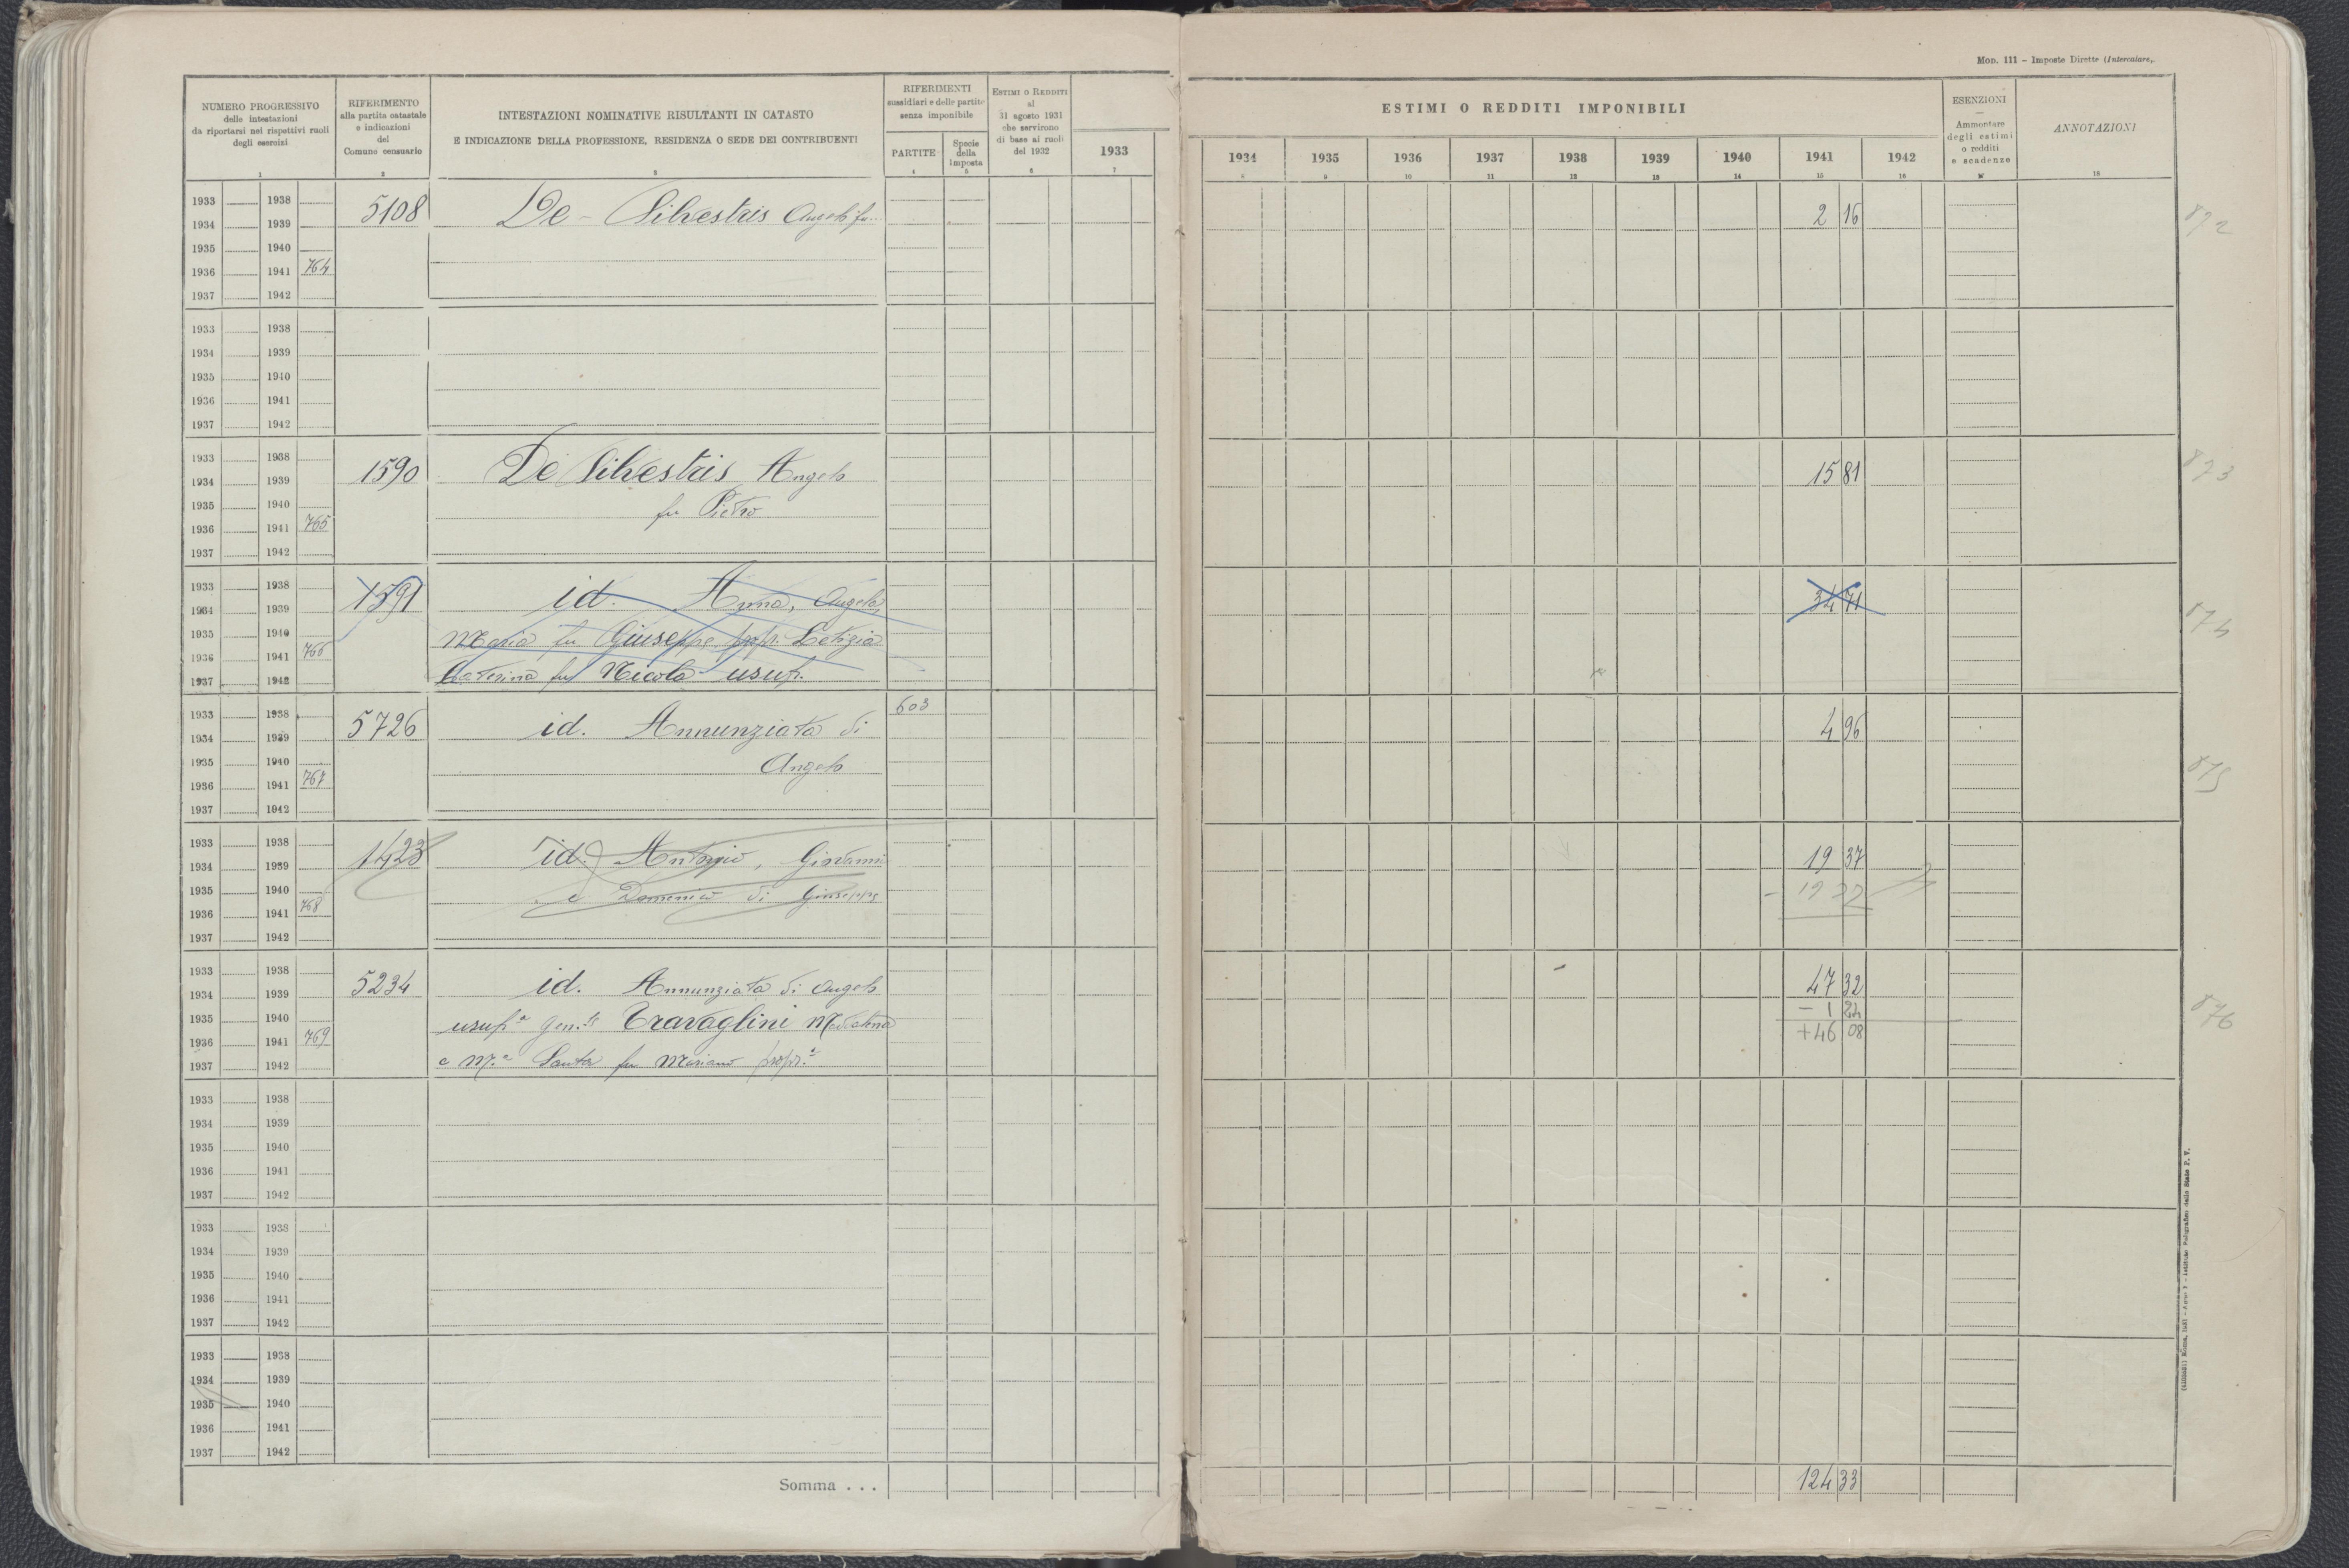 Mod. 111 – Imposte Dirette (Intercalare).
NUMERO PROGRESSIVO
delle intestazioni
da riportarsi nei rispettivi ruoli
degli esercizi
1
RIFERIMENTO
alla partita catastale
e indicazioni
del
Comune censuario
2
INTESTAZIONI NOMINATIVE RISULTANTI IN CATASTO
E INDICAZIONE DELLA PROFESSIONE, RESIDENZA O SEDE DEI CONTRIBUENTI
3
RIFERIMENTI
sussidiari e delle partite
senza imponibile
PARTITE
4
Specie
della
imposta
5
ESTIMI O REDDITI
al
31 agosto 1931
che servirono
di base ai ruoli
del 1932
6
ESTIMI O REDDITI IMPONIBILI
1933 1934 1935 1936 1937 1938 1939 1940 1941 1942
7 8 9 10 11 12 13 14 15 16
ESENZIONI
—
Ammontare
degli estimi
o redditi
e scadenze
17
ANNOTAZIONI
18
1933 1938 5108 De-Silvestris Angelo fu... 2 16 872
1934 1939
1935 1940
1936 1941 764
1937 1942
1933 1938
1934 1939
1935 1940
1936 1941
1937 1942
1933 1938
1934 1939 1590 De Silvestris Angelo 15 81 873
1935 1940 fu Pietro
1936 1941 765
1937 1942
1933 1938
1934 1939 1591 id. Anna, Angela, 34 71 874
1935 1940 Maria fu Giuseppe propr. Letizia
1936 1941 766
1937 1942 Caterina fu Nicola usuf.
1933 1938 603
1934 1939 5726 id. Annunziata di 4 96
1935 1940 Angelo 875
1936 1941 767
1937 1942
1933 1938
1934 1939 1423 id. Antonio, Giovanni 19 37
1935 1940 e Domenico di Giuseppe – 19 37
1936 1941 768
1937 1942
1933 1938
1934 1939 5234 id. Annunziata di Angelo 47 32
1935 1940 usuf.a gen.le Travaglini – 1 24 876
1936 1941 769 + 46 08
1937 1942 e M.a Santa fu Mariano propr.e
1933 1938
1934 1939
1935 1940
1936 1941
1937 1942
1933 1938
1934 1939
1935 1940
1936 1941
1937 1942
1933 1938
1934 1939
1935 1940
1936 1941
1937 1942
Somma . . . 124 33